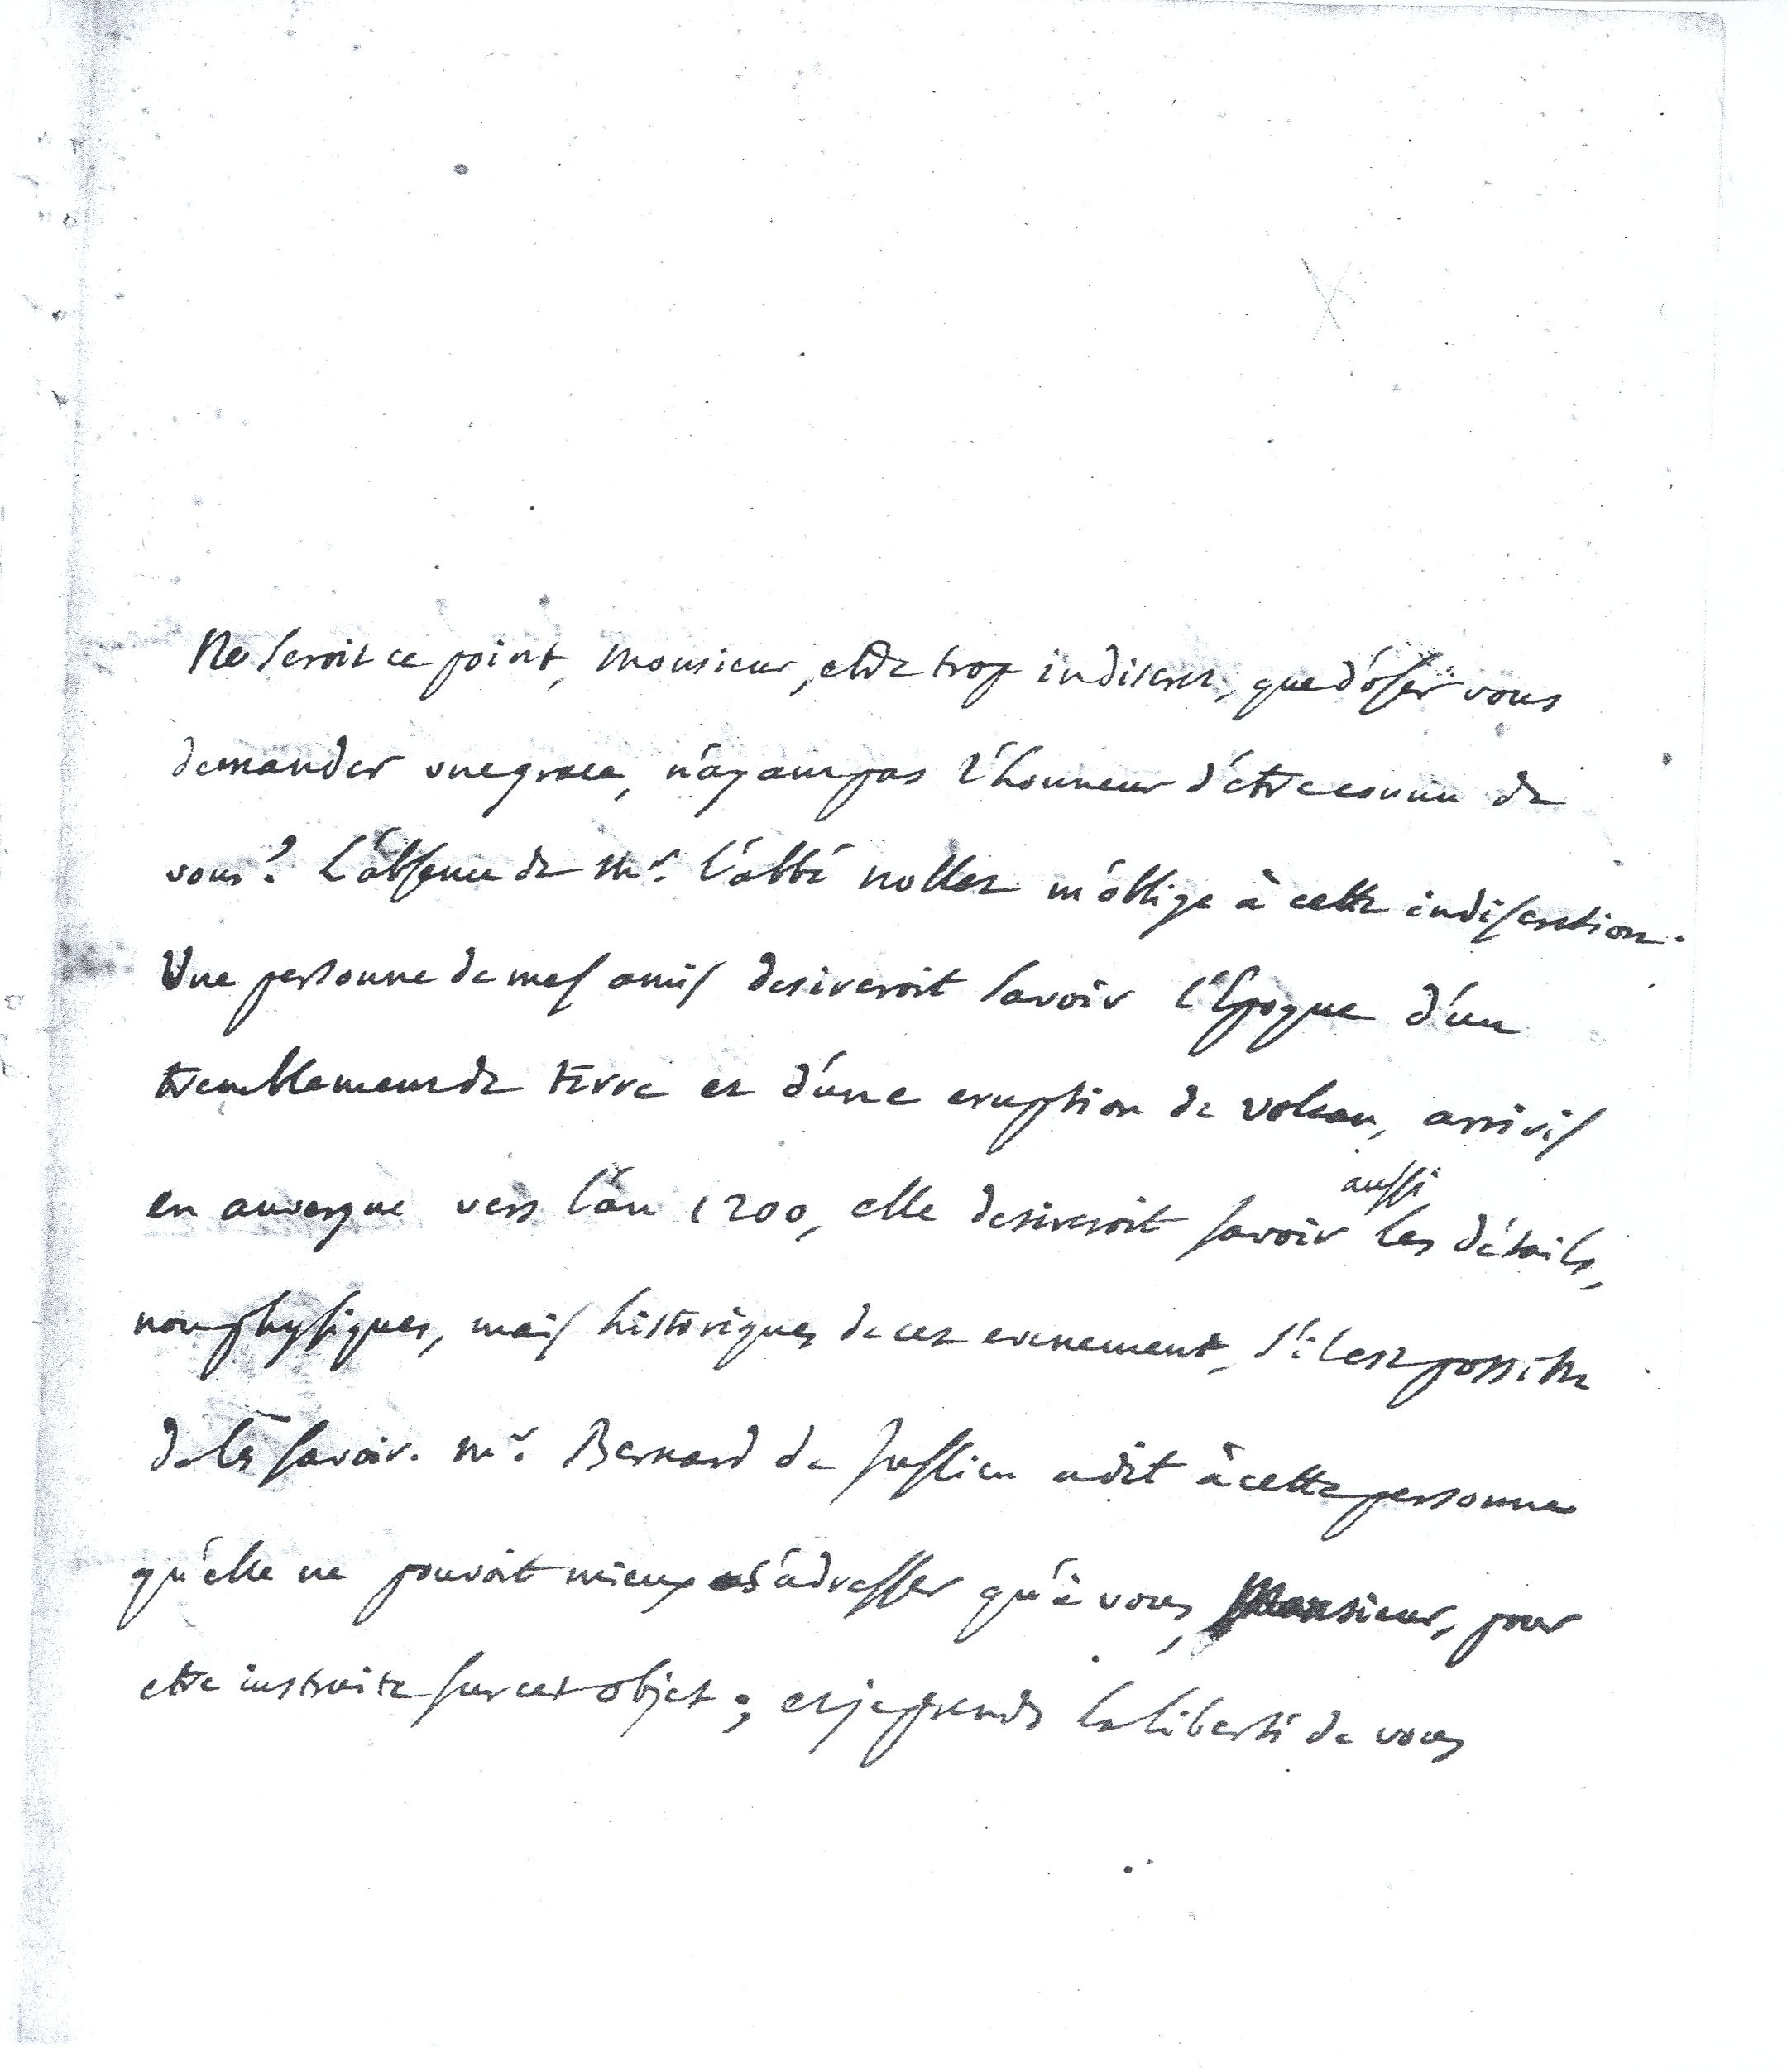 Ne seroit ce point, Monsieur, etre trop indiscret, que d'oser vous
demander une grace, n'ayant pas l'honneur d'étre connu de
vous? L'absence de Mr. l'abbé nollet m'oblige à cette indiscretion.
Une personne de mes amis desireroit savoir l'Epoque d'un
tremblement de terre et d'une eruption de volcan, arrivés
en auvergne vers l'an 1200, elle desireroit savoir aussi les détails,
non physiques, mais historiques de cet evenement, s'il est possible
de les savoir. mr. Bernard de Jussieu a dit à cette personne
qu'elle ne pouvoit mieux s'adresser qu'à vous, Monsieur, pour
etre instruite sur cet objet; et je prends la liberté de vous